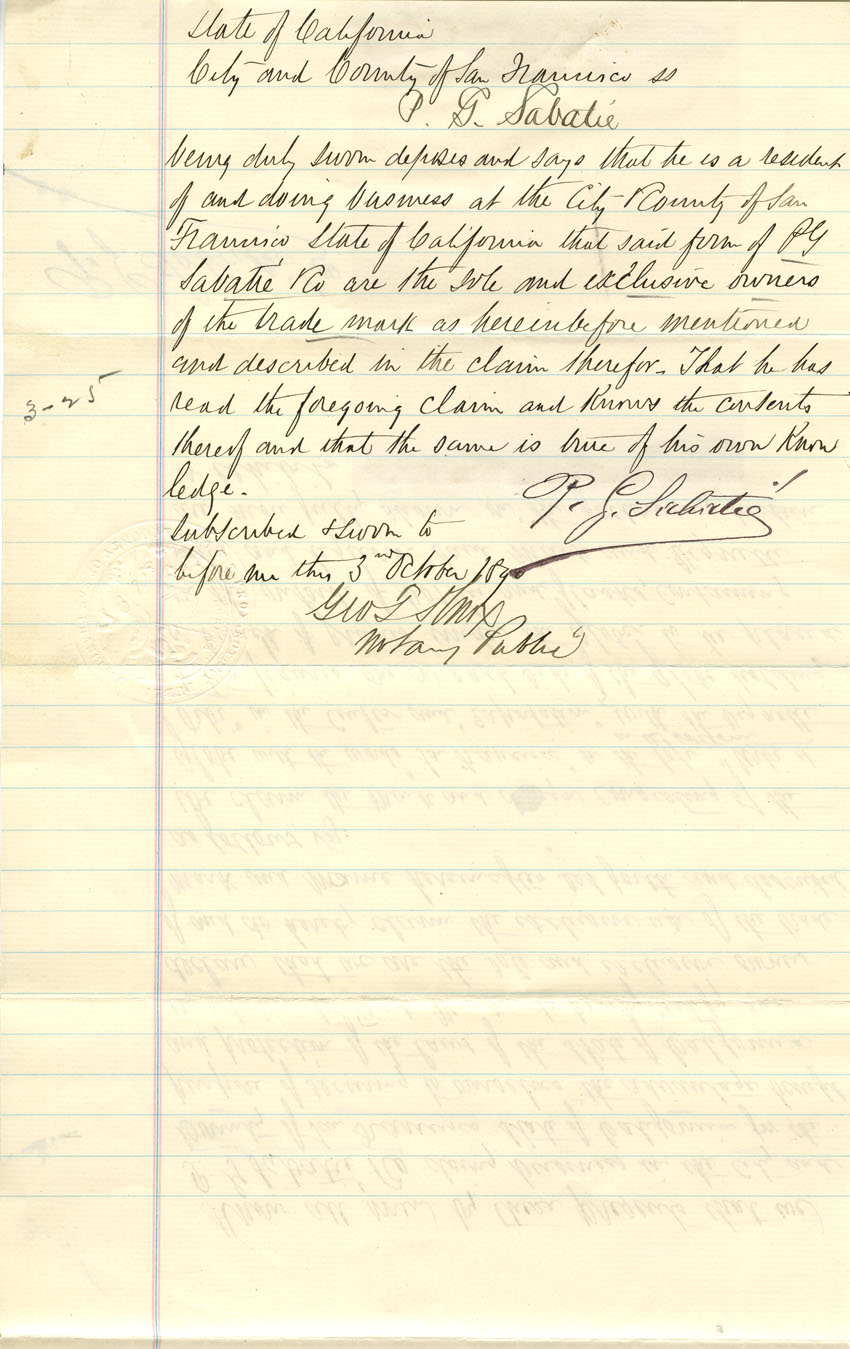 State of California
City and County of San Francisco ss
P. G. Sabatié
being duly sworn deposes and says that he is a resident
of and doing business at the City & County of San
Francisco State of California that said firm of P G
Sabatié & Co are the sole and exclusive owners
of the trade mark as hereinbefore mentioned
and described in the claim therefor. That he has
read the foregoing claim and knows the contents
thereof and that the same is true of his own know
ledge.
P. G. Sabatié
Subscribed & sworn to
before me this 3rd October 1890
Geo T Knox
Notary Public
3-25